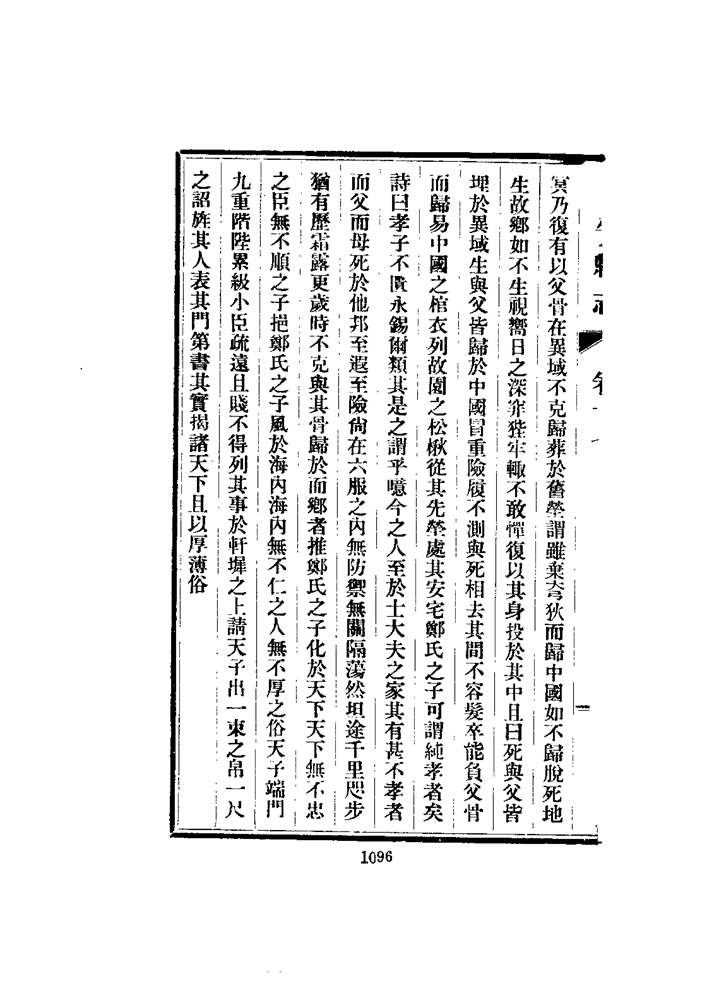 冥乃復有以父骨在異域不克歸葬於舊塋謂雖棄夸狄而歸中國如不歸脫死地
生故鄉如不生視嚮日之深穽狴牢輙不敢憚復以其身投於其中且曰死與父皆
埋於異域生與父皆歸於中國冒重險履不測與死相去其間不容髮卒能負父骨
而歸易中國之棺衣列故園之松楸從其先塋處其安宅鄭氏之子可謂純孝者矣
詩曰孝子不匱永錫爾類其是之謂乎噫今之人至於士大夫之家其有甚不孝者
而父而母死於他邦至遐至險尙在六服之內無防禦無關隔蕩然坦途千里咫步
猶有歷霜露更歲時不克與其骨歸於而鄉者推鄭氏之子化於天下天下無不忠
之臣無不順之子挹鄭氏之子風於海內海內無不仁之人無不厚之俗天子端門
九重階陛累級小臣疏遠且賤不得列其事於軒墀之上請天子出一束之帛一尺
之詔旌其人表其門第書其實揭諸天下且以厚薄俗
1096